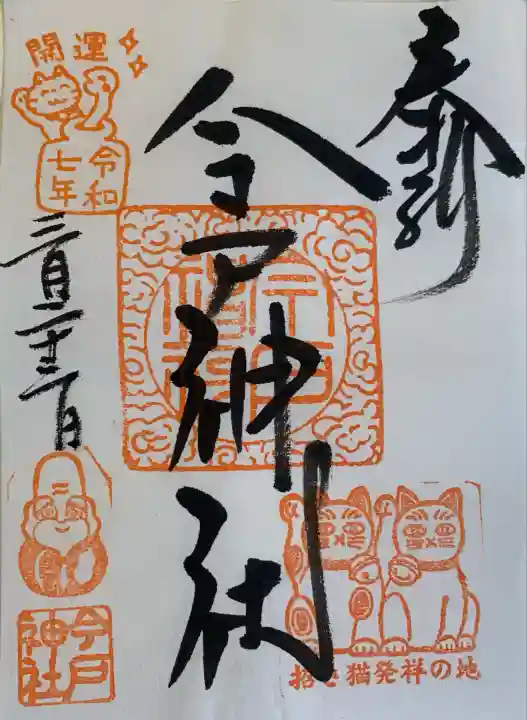 奉拝
今戸神社
開運
令和
七年
三月二十二日
今戸
神社
招き猫発祥の地